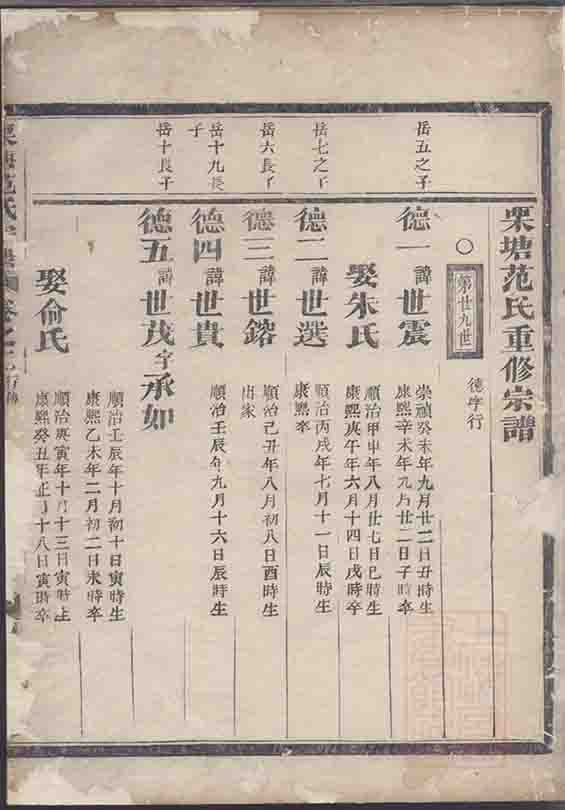 栗塘范氏重修宗譜
○ 第廿九世
德字行
岳五之子
德一 諱世震
崇禎癸未年九月廿二日丑時生
康熙辛未年九月廿二日子時卒
娶朱氏
順治甲申年八月廿七日巳時生
康熙庚午年六月十四日戌時卒
岳七之子
德二 諱世選
順治丙戌年七月十一日辰時生
康熙卒
岳六長子
德三 諱世鎔
順治己丑年八月初八日酉時生
出家
岳十九長子
德四 諱世貴
順治壬辰年九月十六日辰時生
岳十長子
德五 諱世茂字承如
順治壬辰年十月初十日寅時生
康熙乙未年二月初二日未時卒
娶俞氏
順治庚寅年十月十三日寅時生
康熙癸丑年正月十八日寅時卒